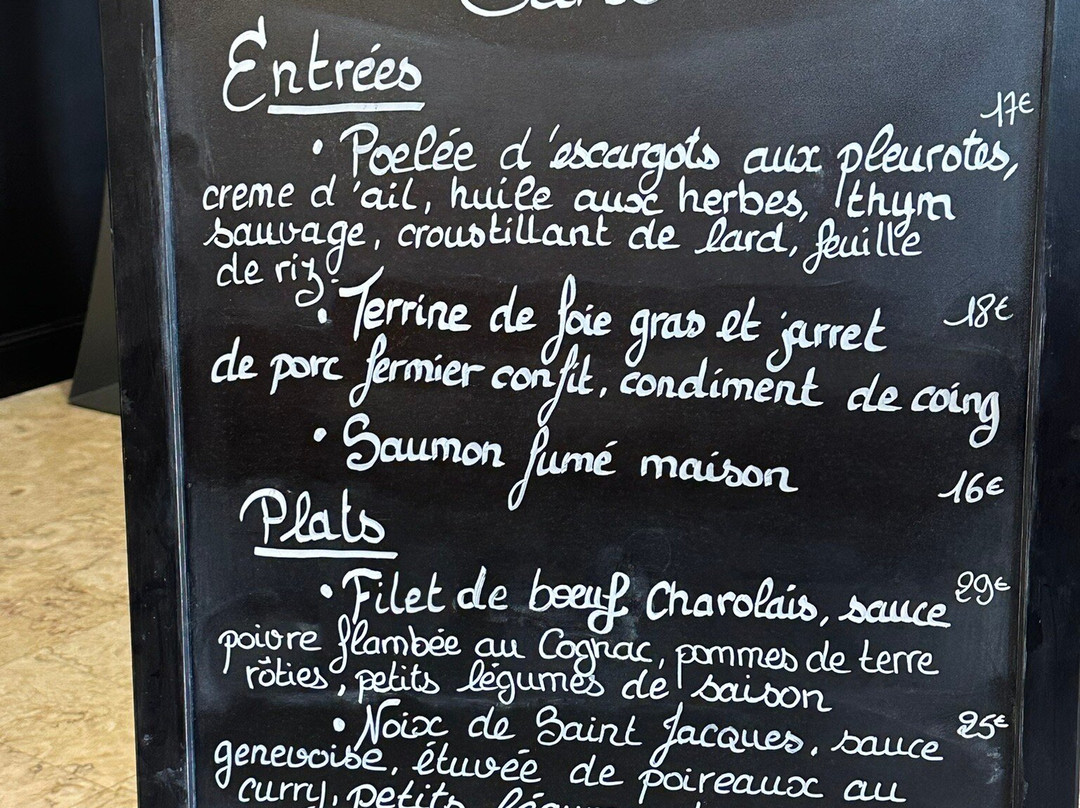 Entrées
17€
• Poelée d'escargots aux pleurotes,
creme d'ail, huile aux herbes, thym
sauvage, croustillant de lard, feuille
de riz.
• Terrine de foie gras et jarret 18€
de porc fermier confit, condiment de coing
• Saumon fumé maison
16€
Plats
• Filet de bœuf Charolais, sauce 29€
poivre flambée au Cognac, pommes de terre
rôties, petits légumes de saison
• Noix de Saint Jacques, sauce 25€
genevoise, étuvée de poireaux au
curry, petits